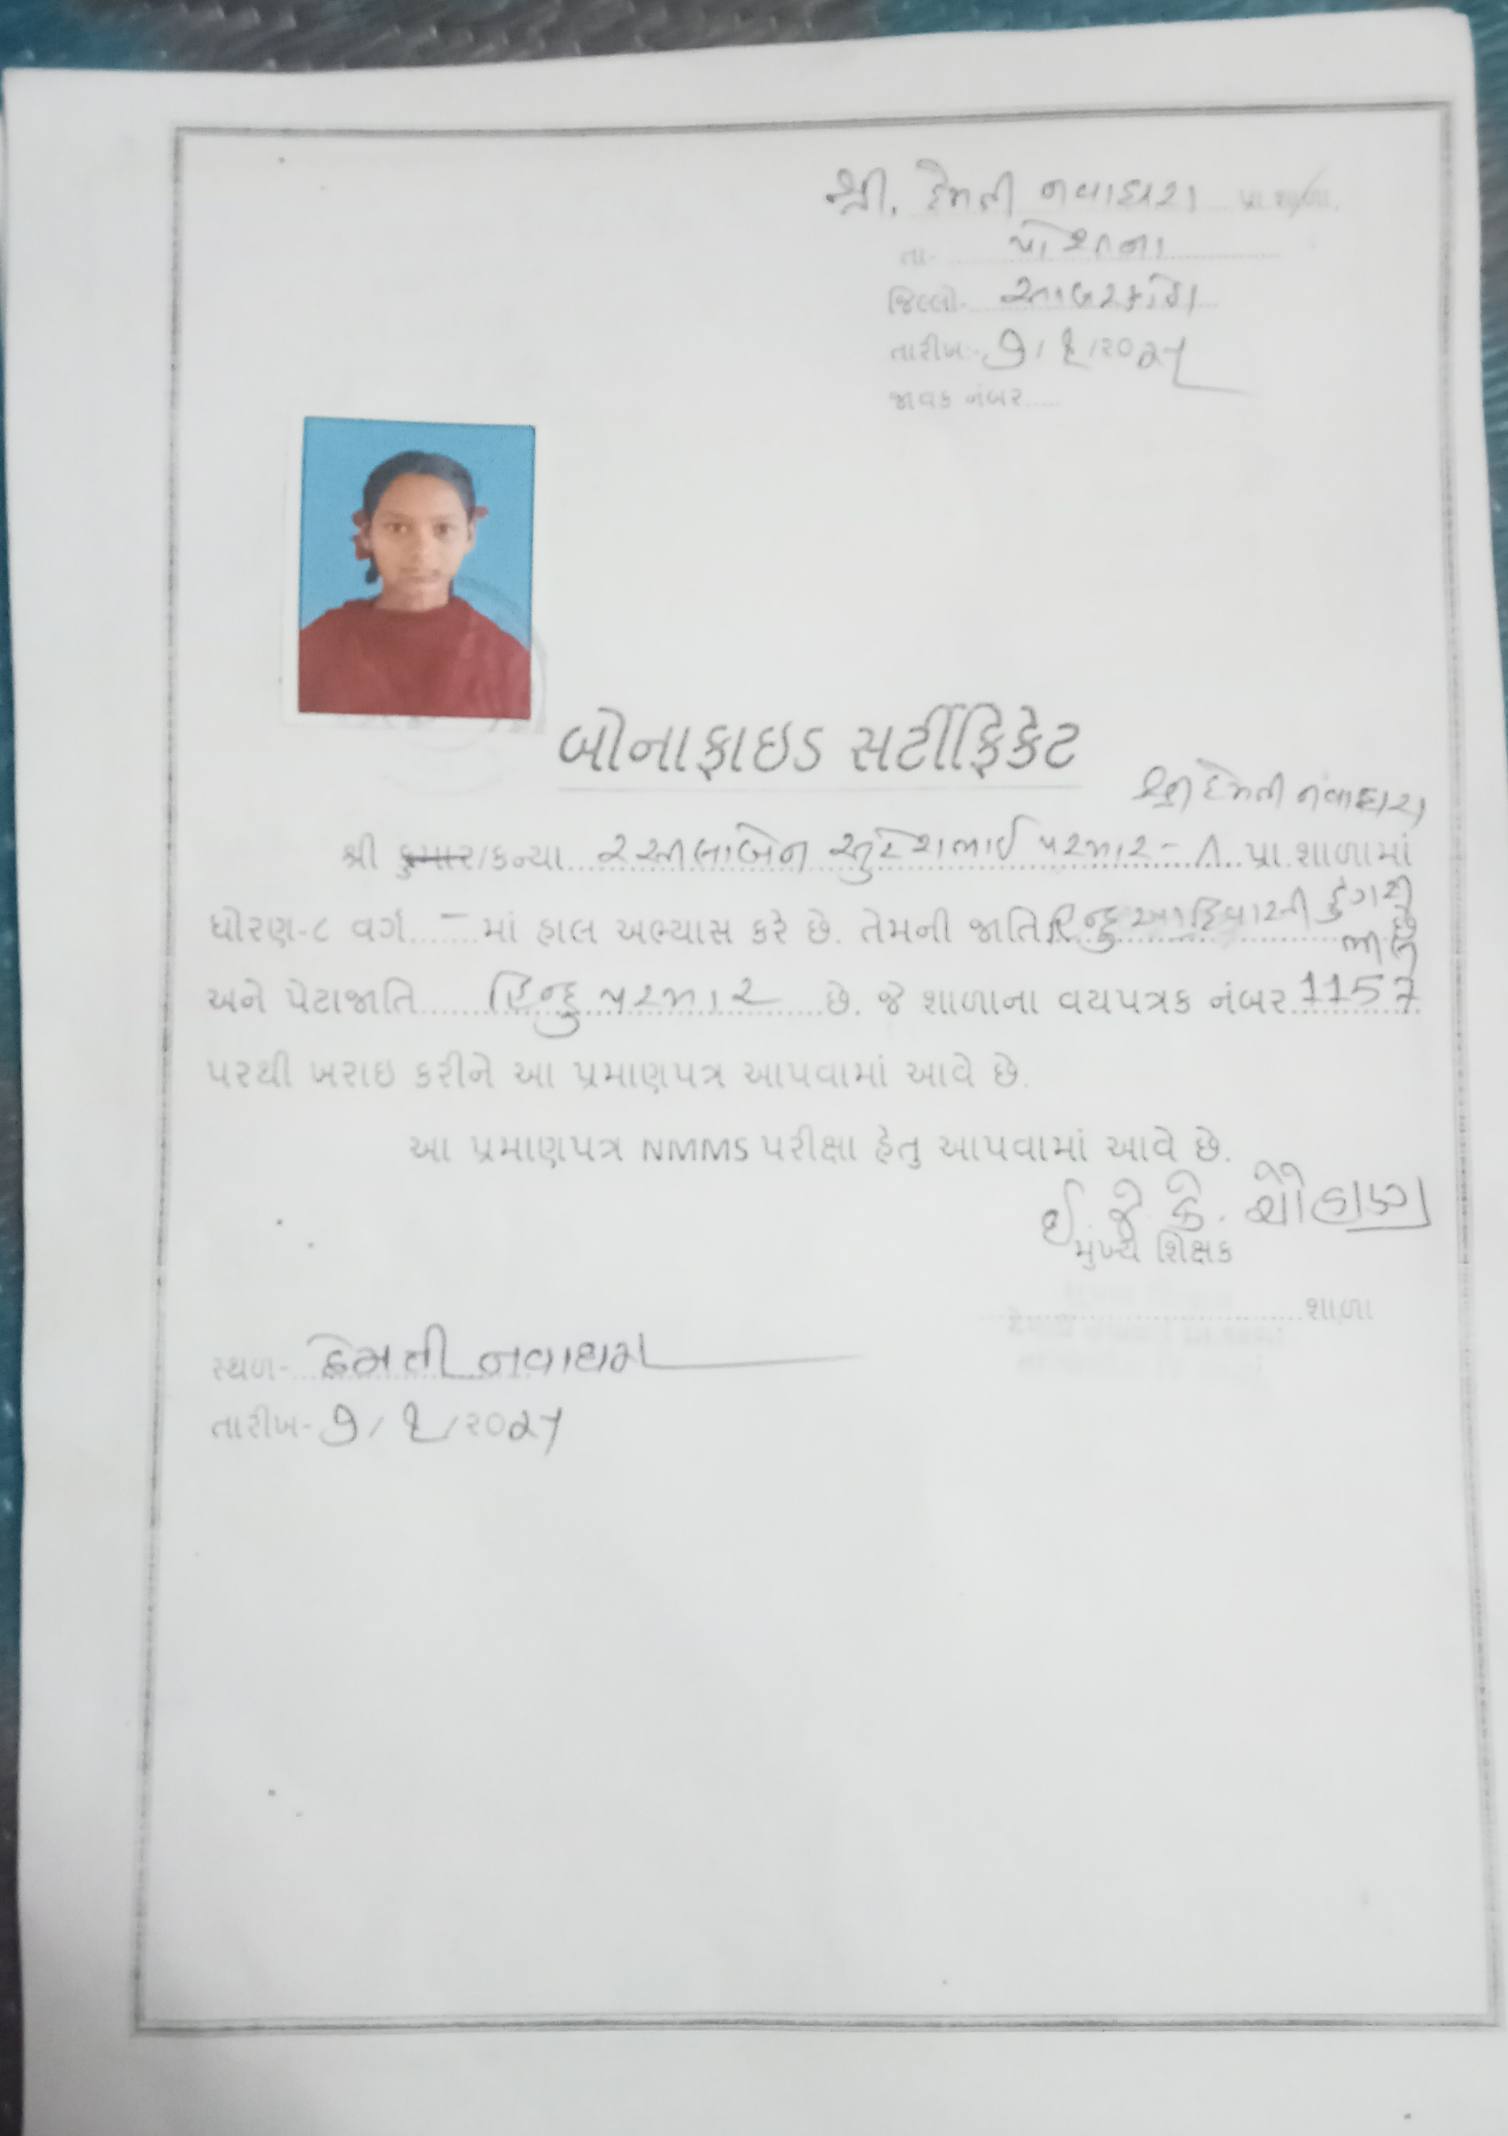 શ્રી. દેમતી નવાઘરા પ્રા.શાળા.
તા- પોશીના
જિલ્લો- સાબરકાંઠા
તારીખ:- ૭/૧/૨૦૨૫
જાવક નંબર.....
બોનાફાઇડ સર્ટીફિકેટ
શ્રી દેમતી નવાઘરા
શ્રી કુમાર/કન્યા...રસીલાબેન સુરેશભાઈ પરમાર-...પ્રા.શાળામાં
ધોરણ-૮ વર્ગ.....-માં હાલ અભ્યાસ કરે છે. તેમની જાતિ હિન્દુ આદિવાસી ડુંગરી
ભીલ છે
અને પેટાજાતિ......હિન્દુ પરમાર......છે. જે શાળાના વયપત્રક નંબર 1157
પરથી ખરાઇ કરીને આ પ્રમાણપત્ર આપવામાં આવે છે.
આ પ્રમાણપત્ર NMMS પરીક્ષા હેતુ આપવામાં આવે છે.
ઈ. જે. કે. ચૌહાણ
મુખ્ય શિક્ષક
................................શાળા
સ્થળ- દેમતી નવાઘરા
તારીખ- ૭/૧/૨૦૨૫